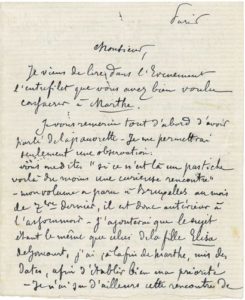 Paris
Monsieur,
Je viens de lire, dans l'Evènement
l'entrefilet que vous avez bien voulu
consacrer à Marthe.
Je vous remercie tout d'abord d'avoir
parlé de la pauvrette - Je me permettrai
seulement une observation:
vous me dites "si ce n'est là un pastiche
voilà du moins une curieuse rencontre"
- mon volume a paru à Bruxelles au mois
de 7bre dernier, il est donc antérieur à
l'assommoir - J'ajouterai que le sujet
étant le même que celui de la fille Elisa
de Goncourt, j'ai à la fin de Marthe, mis des
dates, afin d'établir bien ma priorité
- Je n'ai eu d'ailleurs cette rencontre de